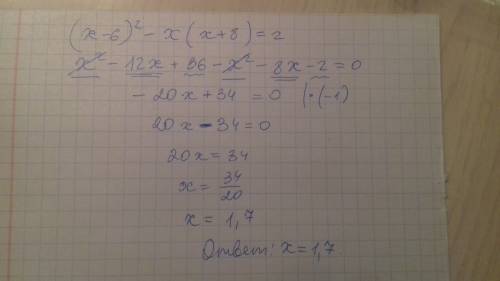 (x-6)² - x(x+8) = 2
x² - 12x + 36 - x² - 8x - 2 = 0
- 20x + 34 = 0 |·(-1)
20x - 34 = 0
20x = 34
x = 34/20
x = 1,7
Ответ: x = 1,7